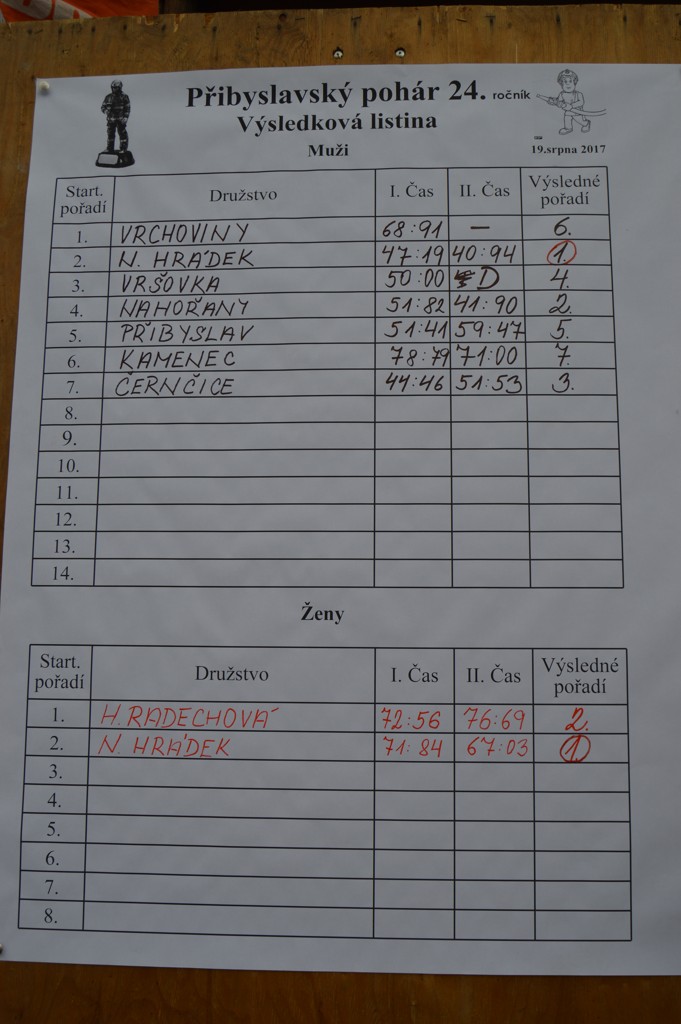 Přibyslavský pohár 24. ročník
Výsledková listina
Muži
19.srpna 2017
Start. pořadí Družstvo I. Čas II. Čas Výsledné pořadí
1. VRCHOVINY 68:91 — 6.
2. N. HRÁDEK 47:19 40:94 1.
3. VRŠOVKA 50:00 D 4.
4. NAHOŘANY 51:82 41:90 2.
5. PŘIBYSLAV 51:41 59:47 5.
6. KAMENEC 78:79 71:00 7.
7. ČERNČICE 44:46 51:53 3.
8.
9.
10.
11.
12.
13.
14.
Ženy
Start. pořadí Družstvo I. Čas II. Čas Výsledné pořadí
1. H. RADECHOVÁ 72:56 76:69 2.
2. N. HRÁDEK 71:84 67:03 1.
3.
4.
5.
6.
7.
8.